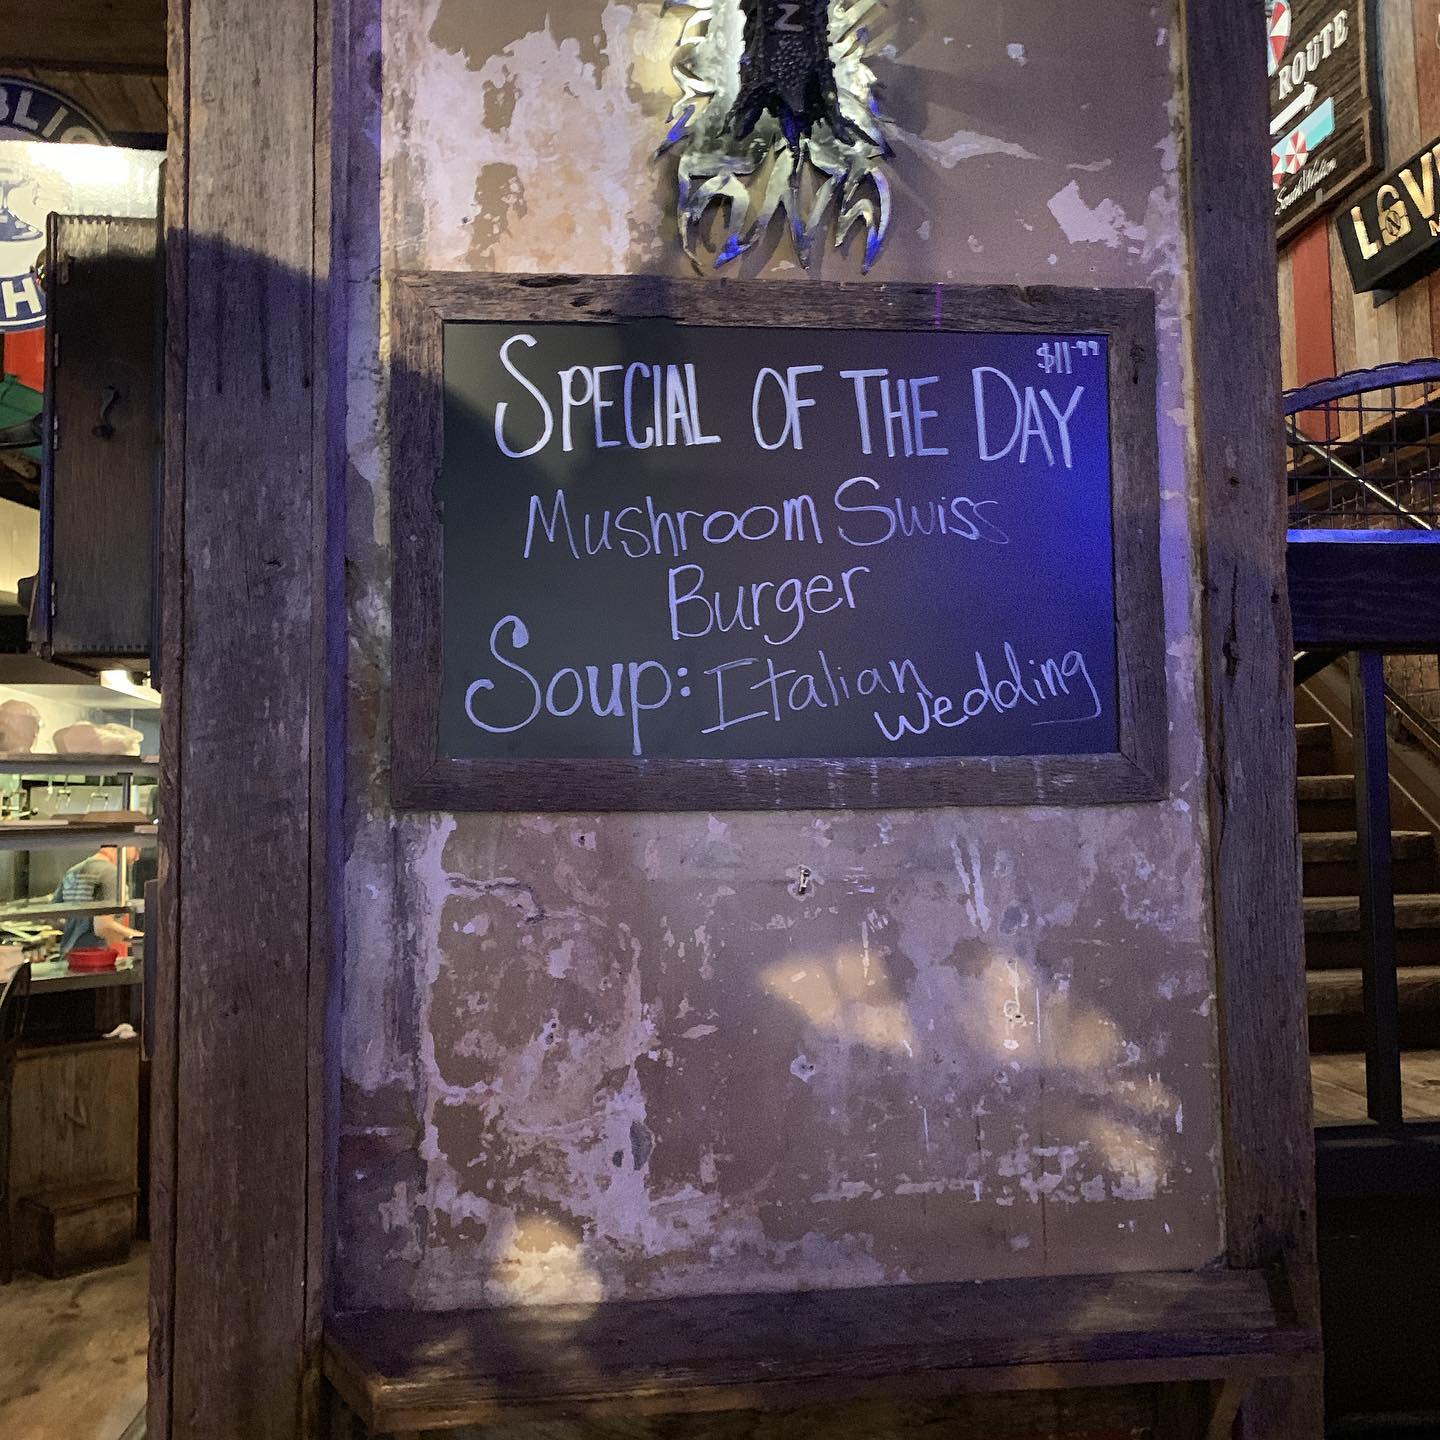 $11.99
SPECIAL OF THE DAY
Mushroom Swiss
Burger
Soup: Italian
wedding
ROUTE
South Walton